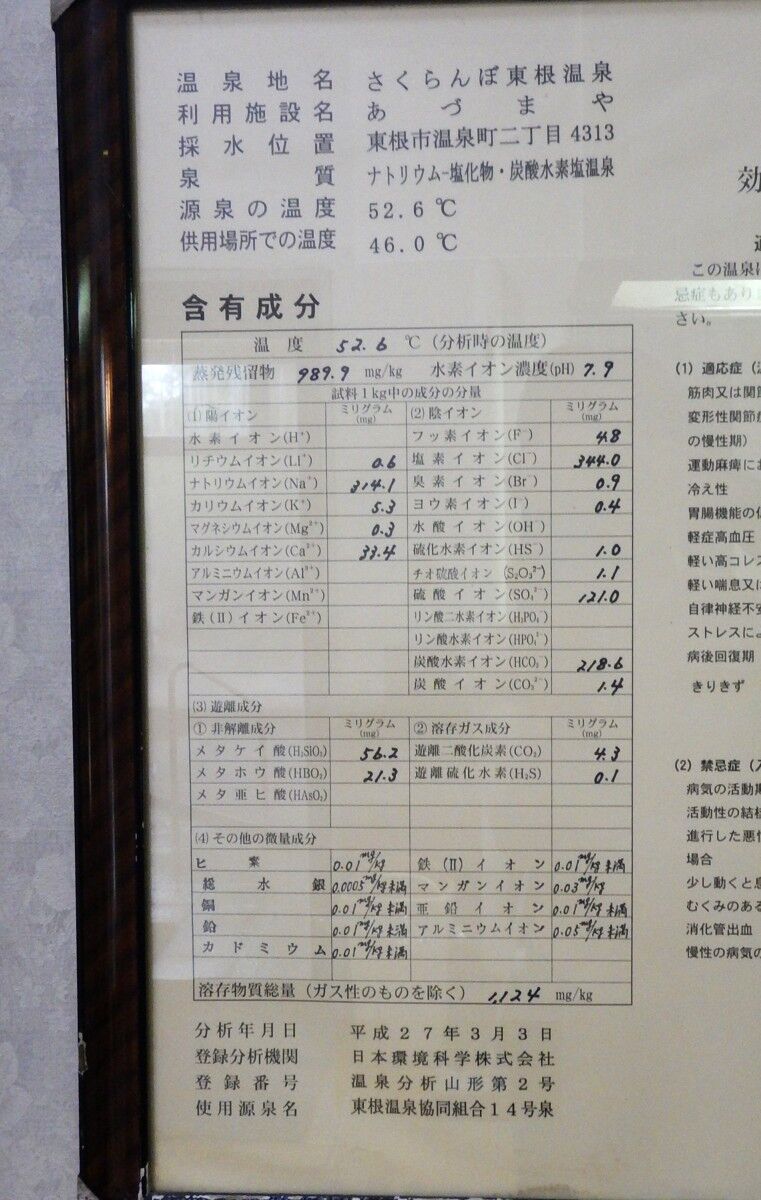 温泉地名 さくらんぼ東根温泉
利用施設名 あづまや
採水位置 東根市温泉町二丁目4313
泉質 ナトリウム-塩化物・炭酸水素塩温泉
源泉の温度 52.6℃
供用場所での温度 46.0℃
含有成分
温度 52.6 ℃(分析時の温度)
蒸発残留物 989.9 mg/kg 水素イオン濃度(pH) 7.9
試料1kg中の成分の分量
(1)陽イオン ミリグラム(mg) (2)陰イオン ミリグラム(mg)
水素イオン(H⁺) フッ素イオン(F⁻) 4.8
リチウムイオン(Li⁺) 0.6 塩素イオン(Cl⁻) 344.0
ナトリウムイオン(Na⁺) 314.1 臭素イオン(Br⁻) 0.9
カリウムイオン(K⁺) 5.3 ヨウ素イオン(I⁻) 0.4
マグネシウムイオン(Mg²⁺) 0.3 水酸イオン(OH⁻)
カルシウムイオン(Ca²⁺) 33.4 硫化水素イオン(HS⁻) 1.0
アルミニウムイオン(Al³⁺) チオ硫酸イオン(S₂O₃²⁻) 1.1
マンガンイオン(Mn²⁺) 硫酸イオン(SO₄²⁻) 121.0
鉄(II)イオン(Fe²⁺) リン酸二水素イオン(H₂PO₄⁻)
リン酸水素イオン(HPO₄²⁻)
炭酸水素イオン(HCO₃⁻) 218.6
炭酸イオン(CO₃²⁻) 1.4
(3)遊離成分
①非解離成分 ミリグラム(mg) ②溶存ガス成分 ミリグラム(mg)
メタケイ酸(H₂SiO₃) 56.2 遊離二酸化炭素(CO₂) 4.3
メタホウ酸(HBO₂) 21.3 遊離硫化水素(H₂S) 0.1
メタ亜ヒ酸(HAsO₂)
(4)その他の微量成分
ヒ素 0.01mg/kg 鉄(II)イオン 0.01mg/kg未満
総水銀 0.0005mg/kg未満 マンガンイオン 0.03mg/kg
銅 0.01mg/kg未満 亜鉛イオン 0.01mg/kg未満
鉛 0.01mg/kg未満 アルミニウムイオン 0.05mg/kg未満
カドミウム 0.01mg/kg未満
溶存物質総量(ガス性のものを除く) 1,124 mg/kg
分析年月日 平成27年3月3日
登録分析機関 日本環境科学株式会社
登録番号 温泉分析山形第2号
使用源泉名 東根温泉協同組合14号泉
効
この温泉に
忌症もあり
さい。
(1) 適応症(
筋肉又は関節
変形性関節症
の慢性期)
運動麻痺にお
冷え性
胃腸機能の低
軽症高血圧
軽い高コレス
軽い喘息又は
自律神経不安
ストレスによ
病後回復期
きりきず
(2) 禁忌症(
病気の活動期
活動性の結核
進行した悪性
場合
少し動くと息
むくみのある
消化管出血
慢性の病気の